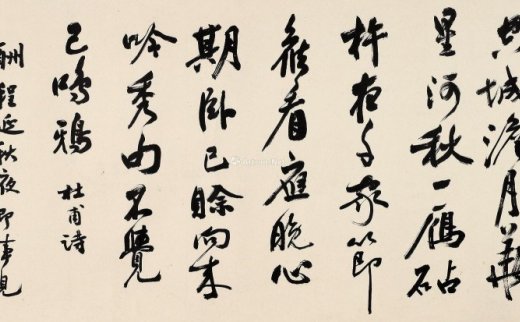 空城澹月華
星河秋一鴈砧
杵夜千家節
候看應晚心
期卧已賒向来
吟秀句不覺
已鳴鴉
杜甫詩
酬程延秋夜即事見